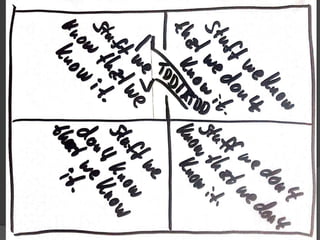 Stuff we
know that we
know it.
Stuff we know
that we don't
know it.
TDD/ATDD
Stuff we
don't know
that we know
it.
Stuff we don't
know that we don't
know it.